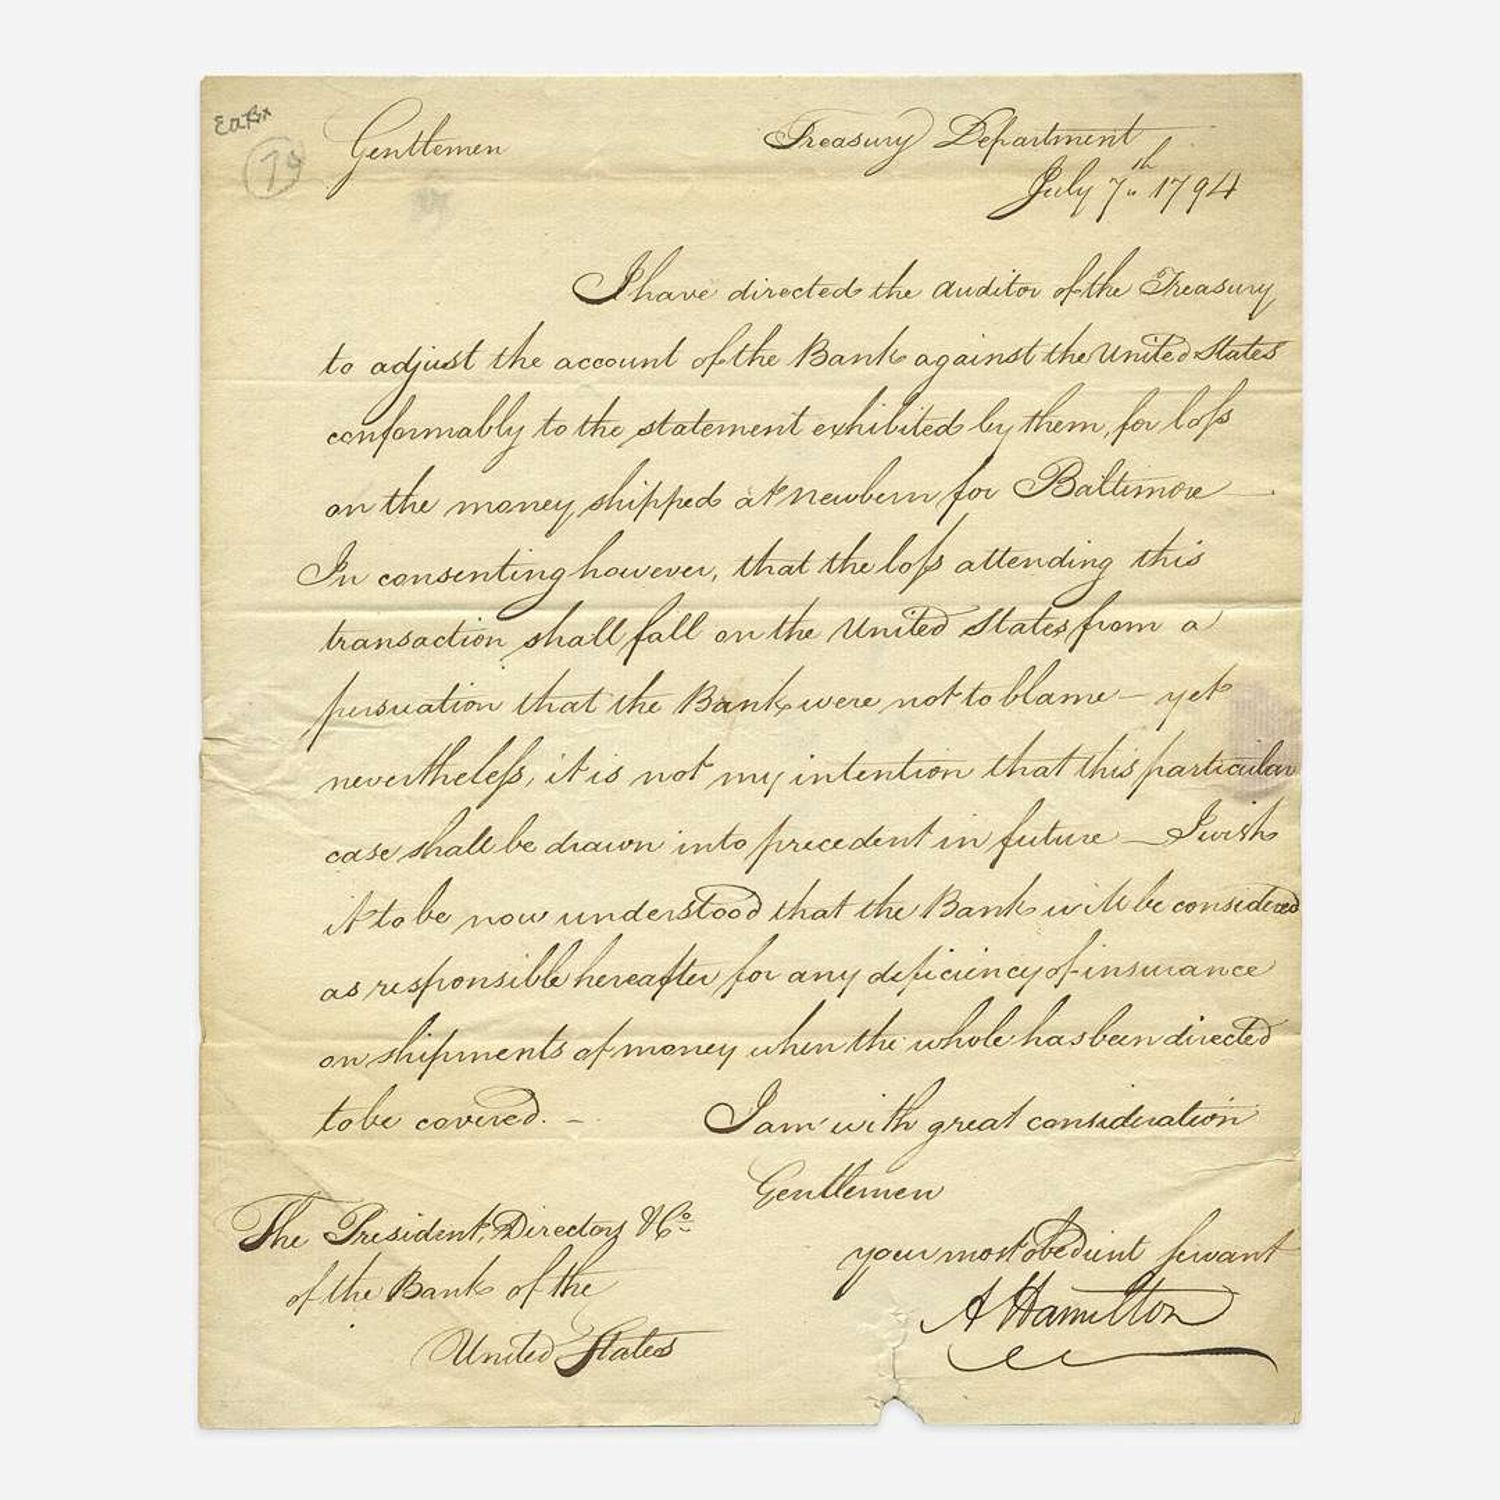 Gentlemen
Treasury Department
July 7th 1794
I have directed the Auditor of the Treasury
to adjust the account of the Bank against the United States
conformably to the statement exhibited by them, for loſs
on the money shipped at Newbern for Baltimore —
In consenting however, that the loſs attending this
transaction shall fall on the United States from a
persuation that the Bank were not to blame — yet
nevertheleſs, it is not my intention that this particular
case shall be drawn into precedent in future — I wish
it to be now understood that the Bank will be considered
as responsible hereafter for any deficiency of insurance
on shipments of money when the whole has been directed
to be covered. —
I am with great consideration
Gentlemen
your most obedient servant
A Hamilton
The President, Directors &Co.
of the Bank of the
United States